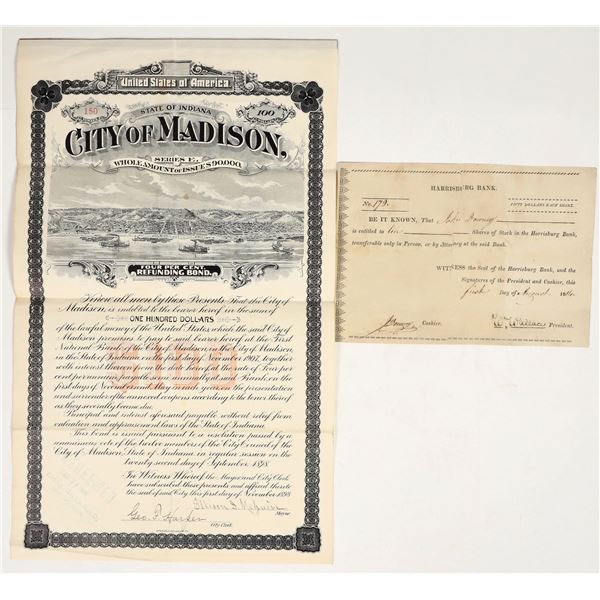 United States of America.
STATE OF INDIANA
150
100
CITY OF MADISON,
SERIES E.
WHOLE AMOUNT OF ISSUE $90,000.
FOUR PER CENT.
REFUNDING BOND.
Know all men by these Presents, That the City of
Madison, is indebted to the bearer hereof in the sum of
ONE HUNDRED DOLLARS
of the lawful money of the United States, which the said City of
Madison promises to pay to said bearer hereof at the First
National Bank of the City of Madison, in the City of Madison,
in the State of Indiana on the first day of November 1907, together
with interest thereon from the date hereof at the rate of Four per
cent per annum, payable semi annually at said Bank, on the
first day of November and May in each year, on the presentation
and surrender of the annexed coupons according to the tenor thereof
as they severally become due.
Principal and interest aforesaid payable without relief from
valuation and appraisement laws of the State of Indiana.
This bond is issued pursuant to a resolution passed by a
unanimous vote of the twelve members of the City Council of the
City of Madison, State of Indiana, in regular session on the
twenty second day of September 1898
In Witness Whereof the Mayor and City Clerk
have subscribed these presents and affixed thereto
the seal of said City this first day of November 1898
Mayor
Geo. F. Harper
City Clerk.
HARRISBURG BANK.
No. 179.
FIFTY DOLLARS EACH SHARE.
BE IT KNOWN, That
is entitled to ten Shares of Stock in the Harrisburg Bank,
transferable only in Person, or by Attorney at the said Bank.
WITNESS the Seal of the Harrisburg Bank, and the
Signatures of the President and Cashier, this
first Day of August
Cashier.
Wm Wallace President.